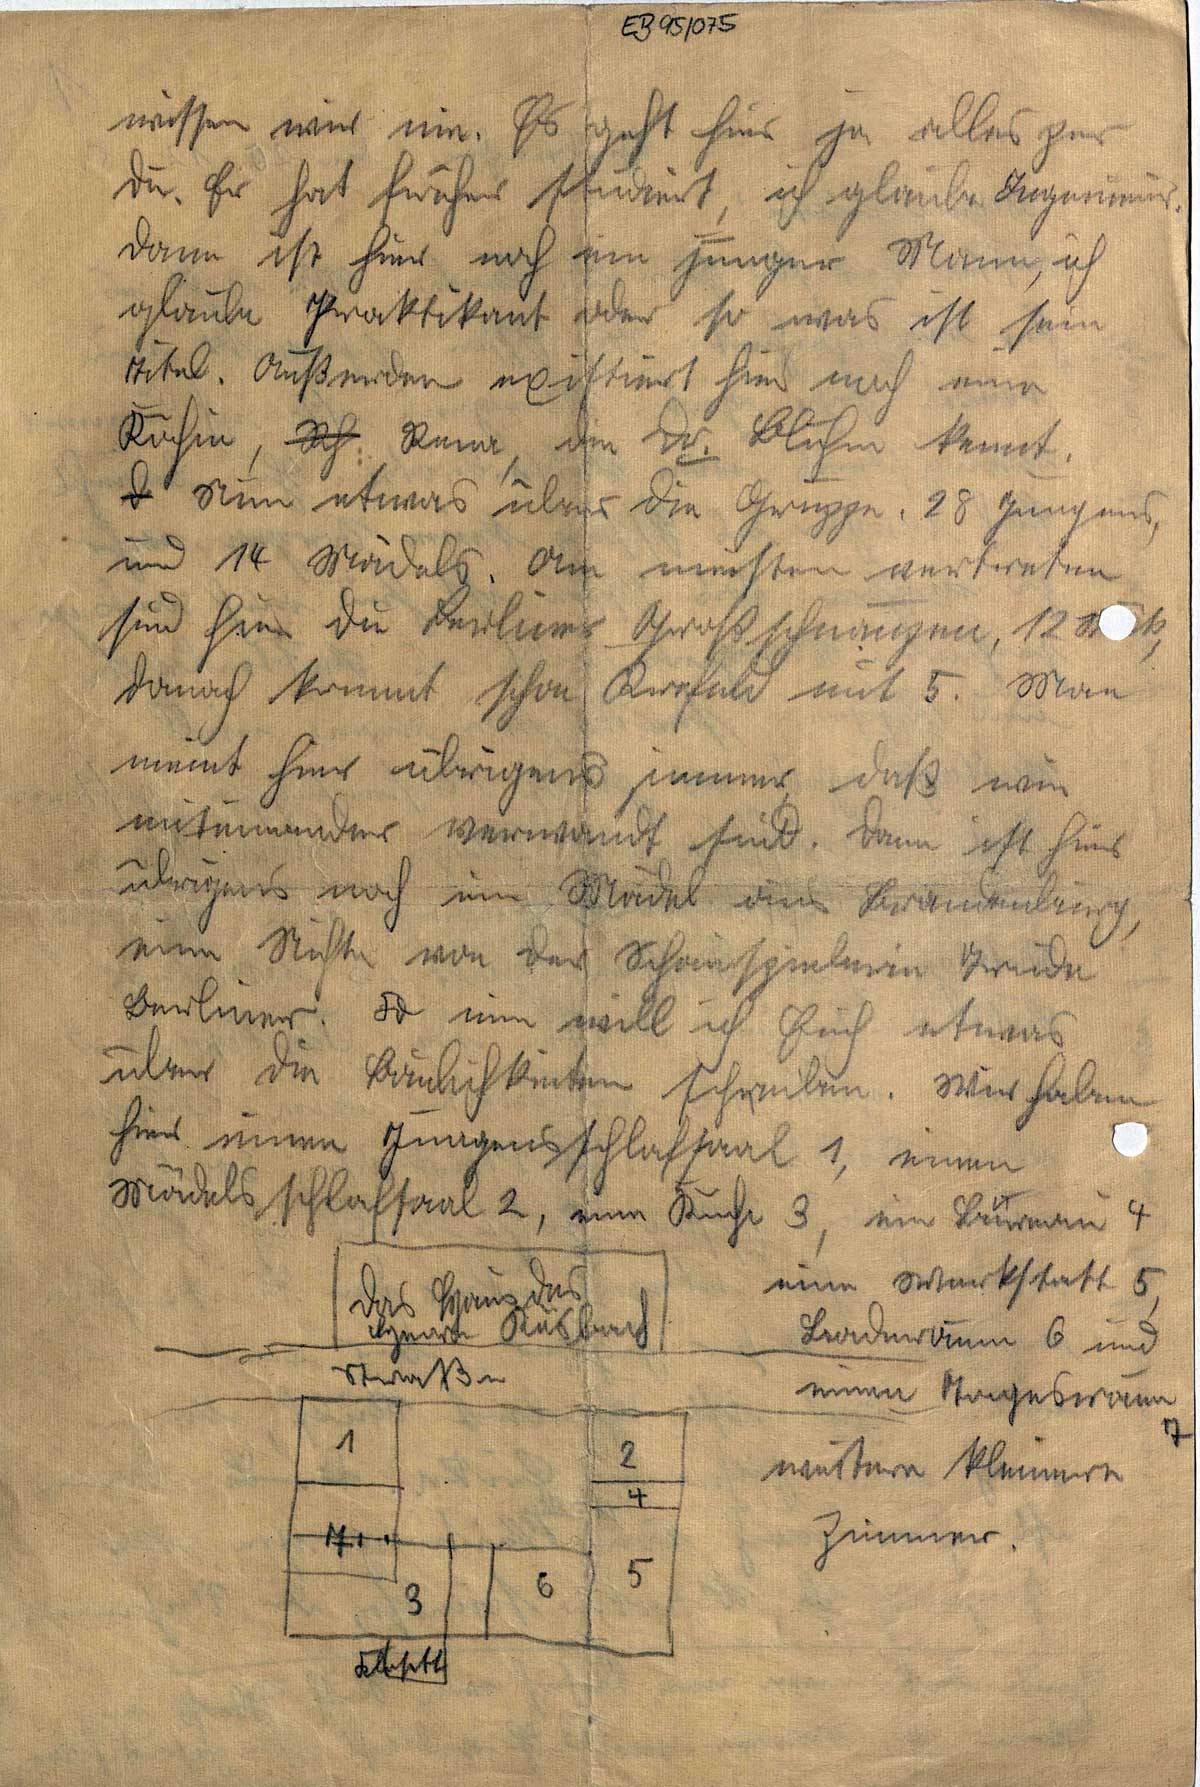 EB 95/075
wissen wir nie. Es geht hier ja alles per
Du. Er hat früher studiert, ich glaube Ingenieur.
Dann ist hier noch ein junger Mann, ich
glaube Praktikant oder so was ist sein
Titel. Außerdem existiert hier noch eine
Köchin, Rena, die Dr. Bluhm kennt.
Nun etwas über die Gruppe. 28 Jungens,
und 14 Mädels. Am meisten vertreten
sind hier die Berliner Großschnauzen, 12
danach kommt schon Krefeld mit 5. Man
meint hier übrigens immer, daß wir
miteinander verwandt sind. Dann ist hier
übrigens noch ein Mädel aus Brandenburg,
eine Nichte von der Schauspielerin Trude
Berliner. So nun will ich Euch etwas
über die Baulichkeiten schreiben. Wir haben
hier einen Jungensschlafsaal 1, einen
Mädelsschlafsaal 2, eine Küche 3, ein Büreau 4
eine Werkstatt 5,
Baderaum 6 und
einen Tagesraum
7
weitere kleinere
Zimmer.
Das Haus des
Herrn
Straße
1
2
4
7
3
6
5
Klosett